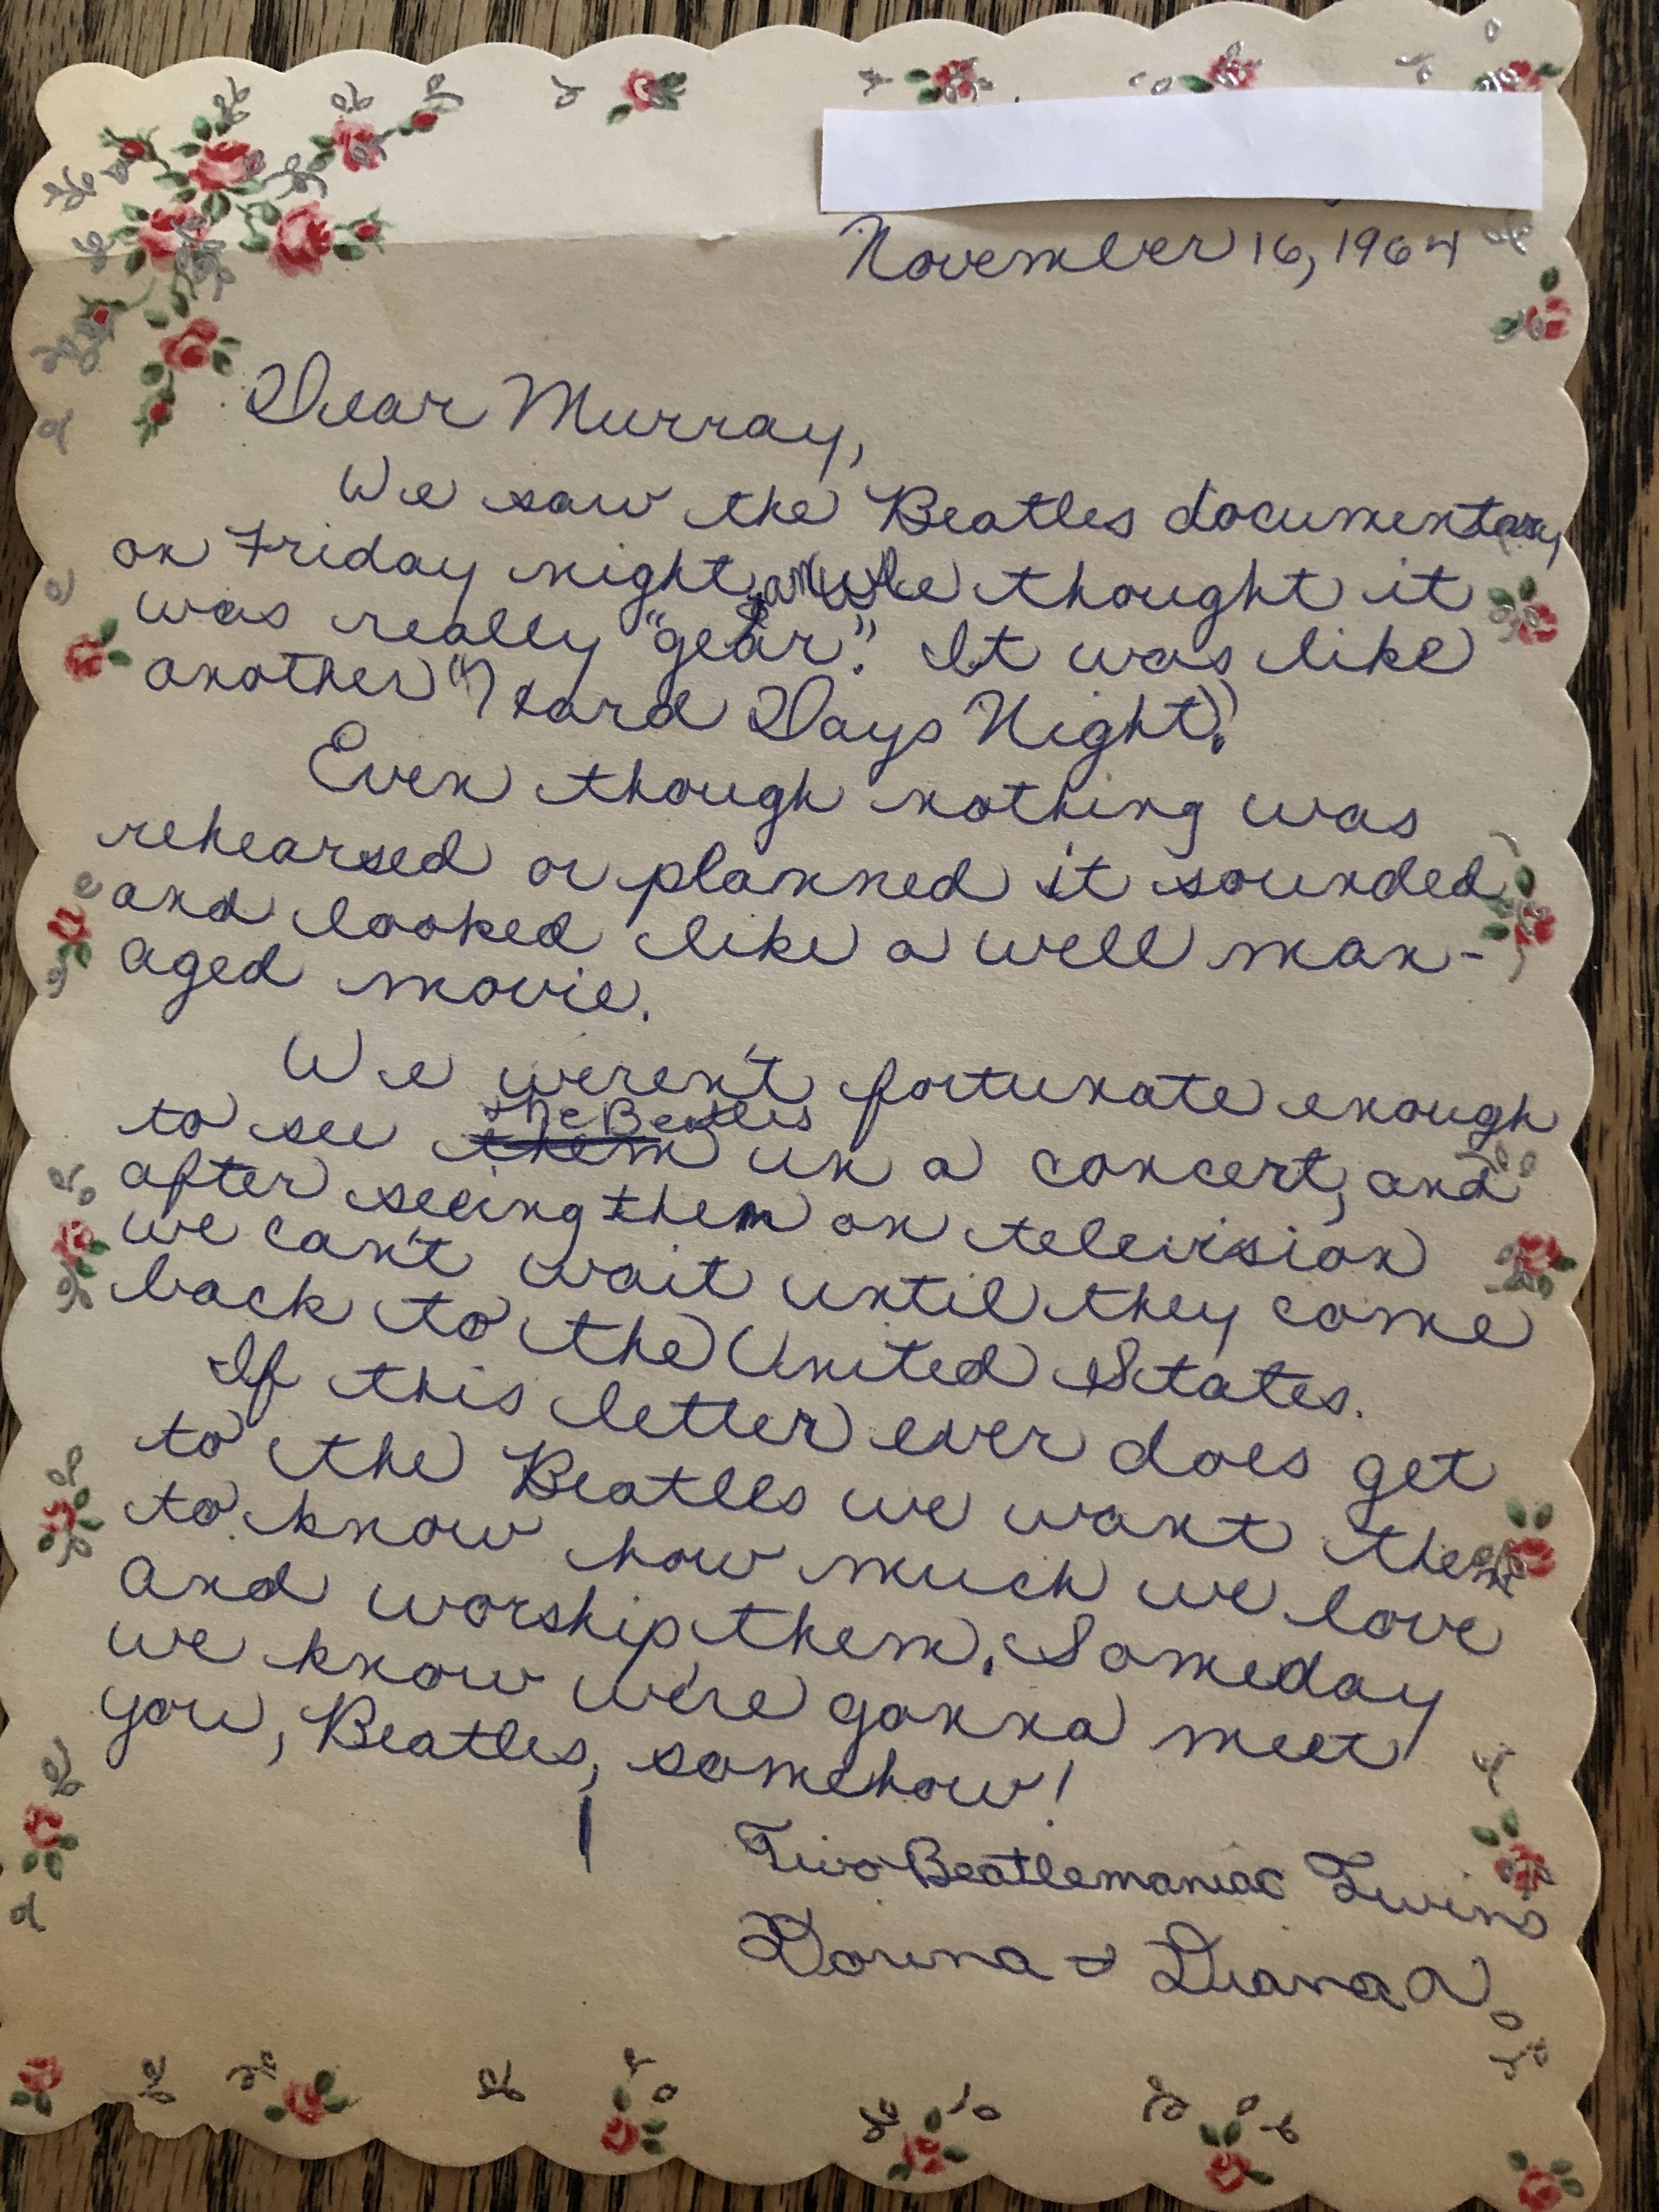 November 16, 1964
Dear Murray,
We saw the Beatles documentary
on Friday night, and we thought it
was really "gear". It was like
another "Hard Days Night".
Even though nothing was
rehearsed or planned it sounded
and looked like a well man-
aged movie.
We weren't fortunate enough
to see the Beatles in a concert, and
after seeing them on television
we can't wait until they come
back to the United States.
If this letter ever does get
to the Beatles we want them
to know how much we love
and worship them. Someday
we know we're gonna meet
you, Beatles, somehow!
Two Beatlemaniac Twins
Donna & Diana